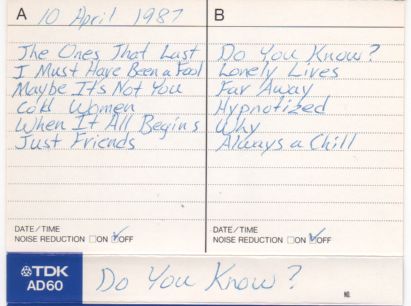 A 10 April 1987
The Ones That Last
I Must Have Been a Fool
Maybe It's Not You
Cold Women
When It All Begins
Just Friends
DATE/TIME
NOISE REDUCTION □ON ☑OFF
B
Do You Know?
Lonely Lives
Far Away
Hypnotized
Why
Always a Chill
DATE/TIME
NOISE REDUCTION □ON ☑OFF
TDK
AD60
Do You Know?